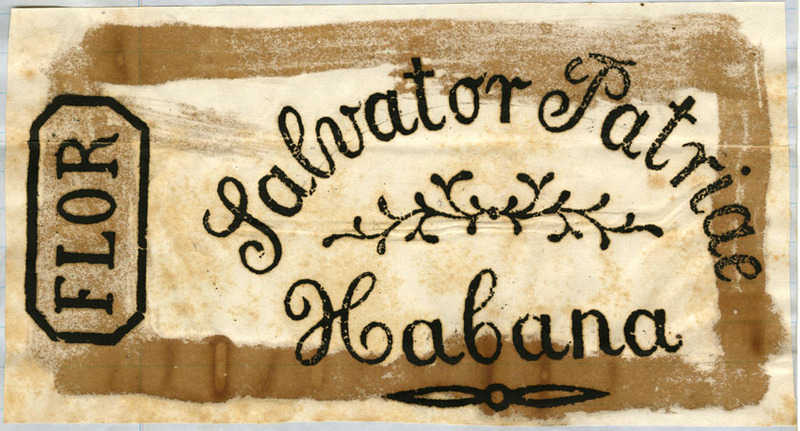 FLOR
Salvator Patriae
Habana